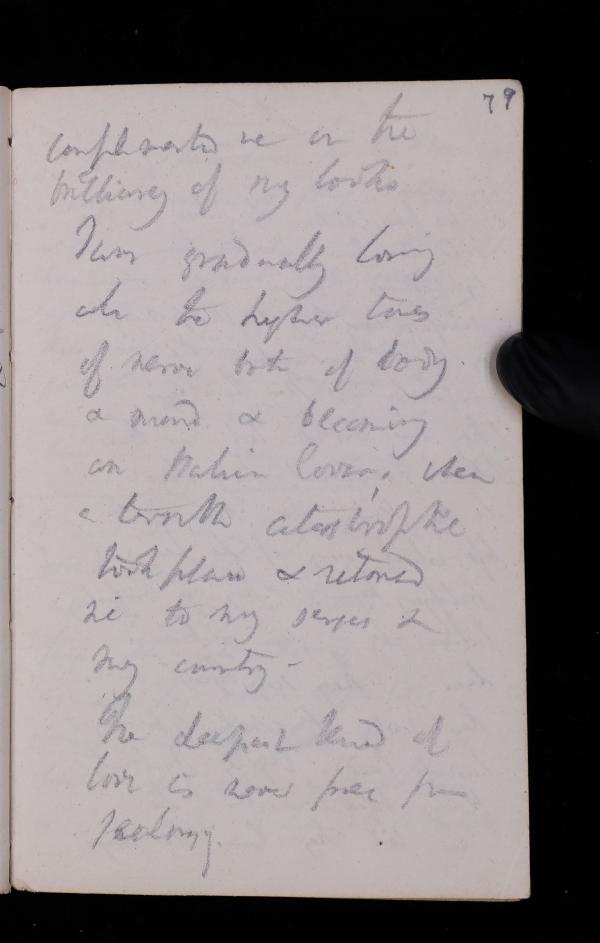 79
complimented me on the
brilliancy of my looks
I was gradually losing
all the higher tones
of nerve both of body
& mind & becoming
an Italian lover, when
a terrible catastrophe
took place & restored
me to my senses &
my country -
The deepest kind of
love is never free from
jealousy.